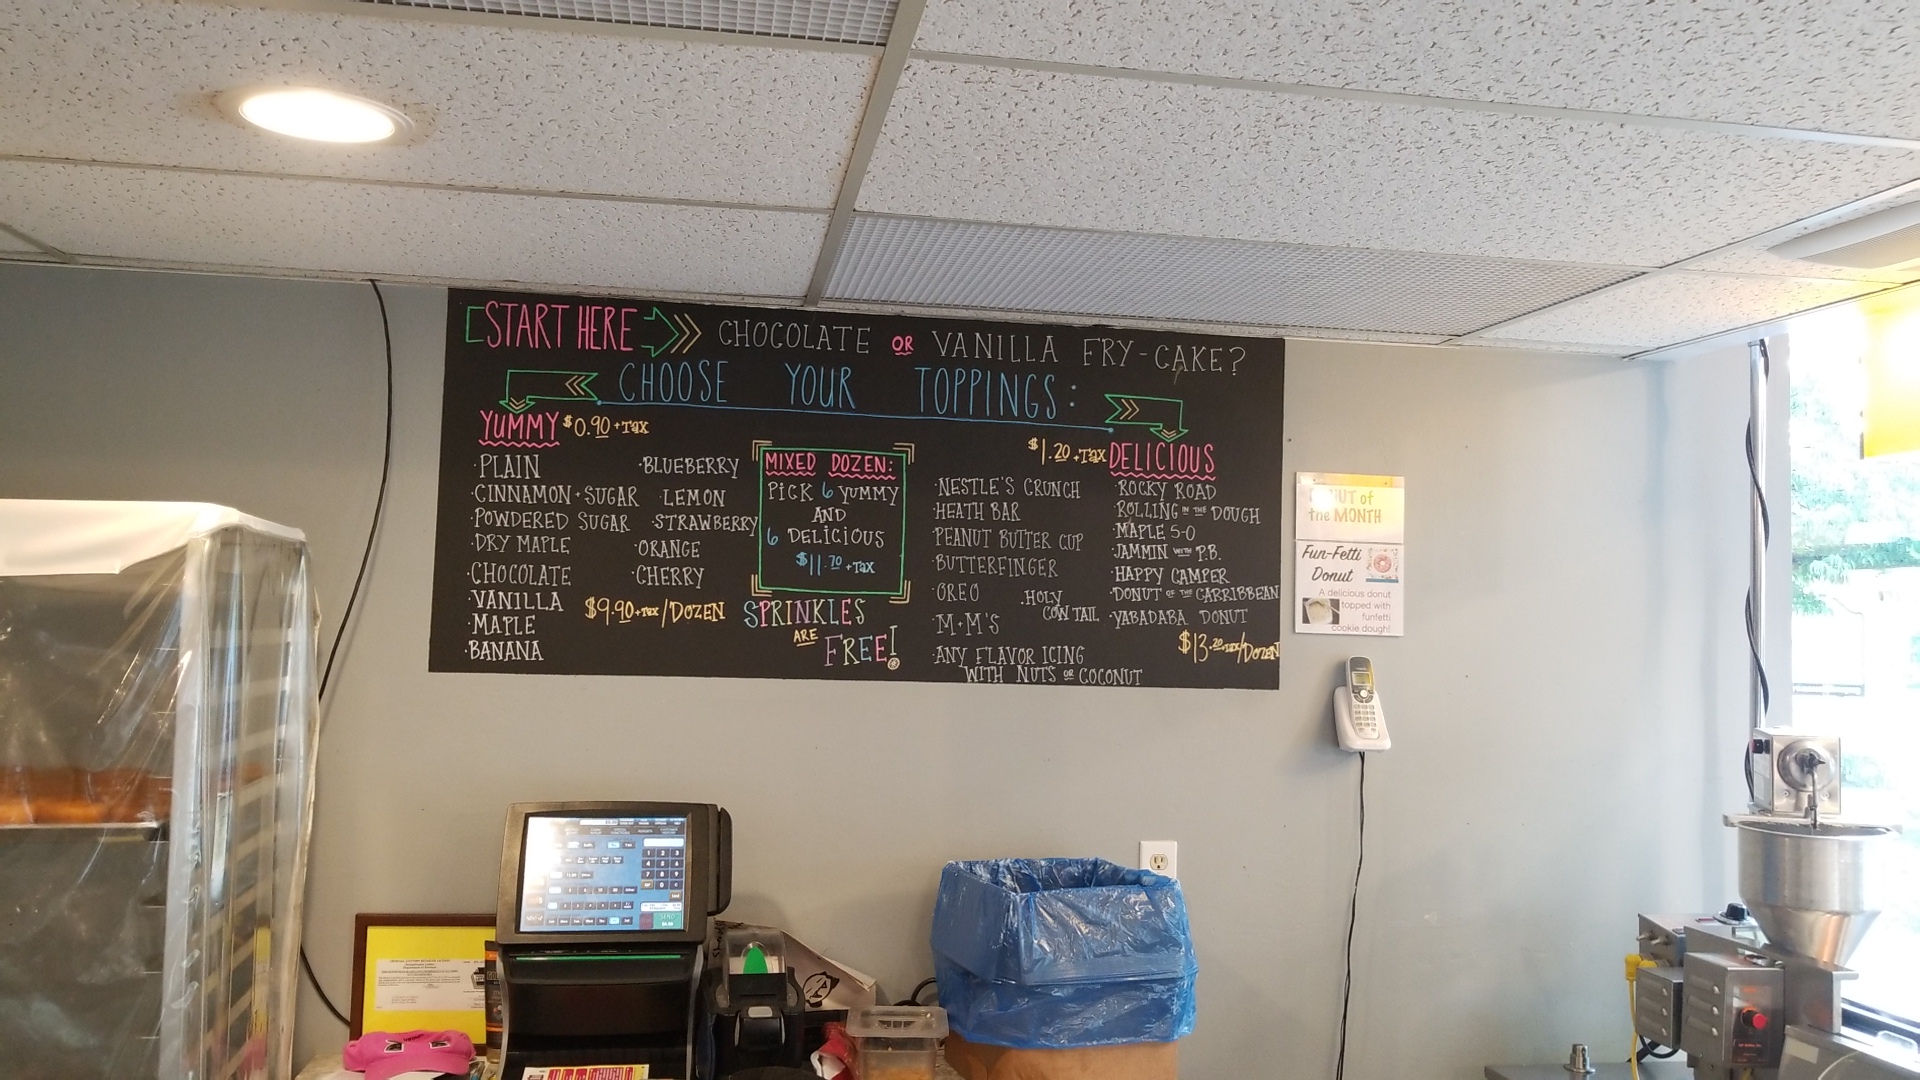 START HERE CHOCOLATE OR VANILLA FRY-CAKE?
CHOOSE YOUR TOPPINGS:
YUMMY $0.90 +TAX
·PLAIN
·CINNAMON + SUGAR
·POWDERED SUGAR
·DRY MAPLE
·CHOCOLATE
·VANILLA
·MAPLE
·BANANA
·BLUEBERRY
·LEMON
·STRAWBERRY
·ORANGE
·CHERRY
$9.90 +TAX/DOZEN
MIXED DOZEN:
PICK 6 YUMMY
AND
6 DELICIOUS
$11.70 +TAX
SPRINKLES
ARE
FREE!
$1.20 +TAX DELICIOUS
·NESTLE'S CRUNCH
·HEATH BAR
·PEANUT BUTTER CUP
·BUTTERFINGER
·OREO
·HOLY
COW TAIL
·M+M'S
·ANY FLAVOR ICING
WITH NUTS OR COCONUT
·ROCKY ROAD
·ROLLING IN THE DOUGH
·MAPLE 5-0
·JAMMIN WITH P.B.
·HAPPY CAMPER
·DONUT OF THE CARRIBBEAN
·YABADABA DONUT
$13.20 +TAX/DOZEN
DONUT of
the MONTH
Fun-Fetti
Donut
A delicious donut
topped with
funfetti
cookie dough!